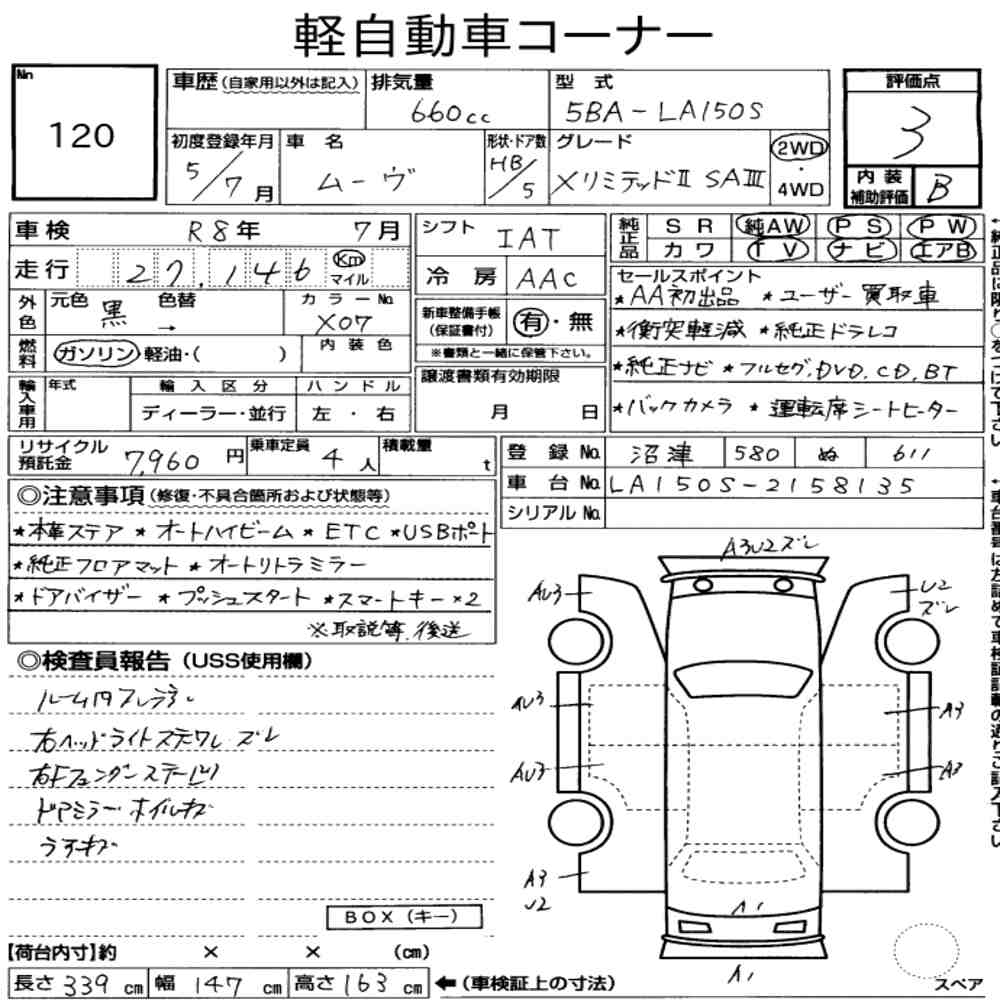 軽自動車コーナー
No
120
車歴 (自家用以外は記入)
排気量
660cc
型式
5BA-LA150S
評価点
3
初度登録年月
5/7月
車名
ムーヴ
形状・ドア数
HB/5
グレード
XリミテッドⅡ SAⅢ
2WD
・
4WD
内装補助評価
B
車検
R8年 7月
シフト
IAT
純正品
SR 純AW PS PW
カワ TV ナビ エアB
走行
27,146
Km
マイル
冷房
AAC
セールスポイント
*AA初出品 *ユーザー買取車
*衝突軽減 *純正ドラレコ
*純正ナビ *フルセグ,DVD,CD,BT
*バックカメラ *運転席シートヒーター
外色
元色
黒
色替
→
カラーNo.
X07
新車整備手帳
(保証書付)
有・無
※書類と一緒に保管下さい。
燃料
ガソリン・軽油・( )
内装色
譲渡書類有効期限
月 日
輸入車用
年式
輸入区分
ディーラー・並行
ハンドル
左・右
リサイクル預託金
7,960円
乗車定員
4人
積載量
t
登録No.
沼津 580 ぬ 611
車台No.
LA150S-2158135
シリアルNo.
◎注意事項 (修復・不具合箇所および状態等)
*本革ステア *オートハイビーム *ETC *USBポート
*純正フロアマット *オートリトラミラー
*ドアバイザー *プッシュスタート *スマートキー×2
※取説等、後送
◎検査員報告 (USS使用欄)
右ヘッドライトステワレ・ズレ
右Fフェンダーステー凹
ドアミラー・ホイルキズ
BOX (キー)
A3U2ズレ
AU3
U2
ズレ
AU3
A3
AU3
A3
A3
U2
A1
A1
スペア
【荷台内寸】約 × × (cm)
長さ 339 cm 幅 147 cm 高さ 163 cm
←(車検証上の寸法)